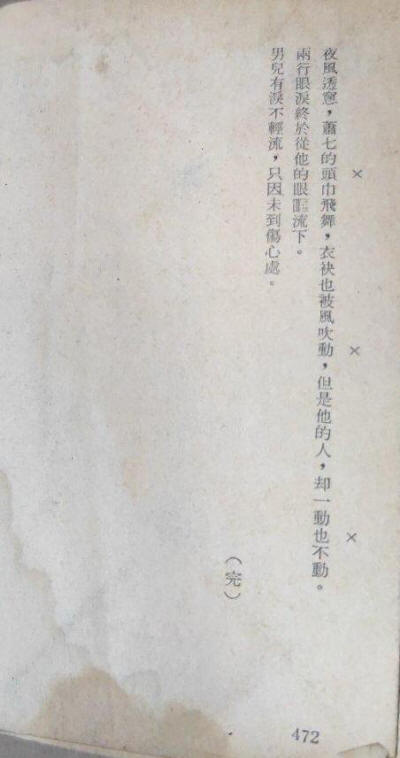 × × ×
夜風透窻，蕭七的頭巾飛舞，衣袂也被風吹動，但是他的人，却一動也不動。
兩行眼淚終於從他的眼眶流下。
男兒有淚不輕流，只因未到傷心處。
（完）
472